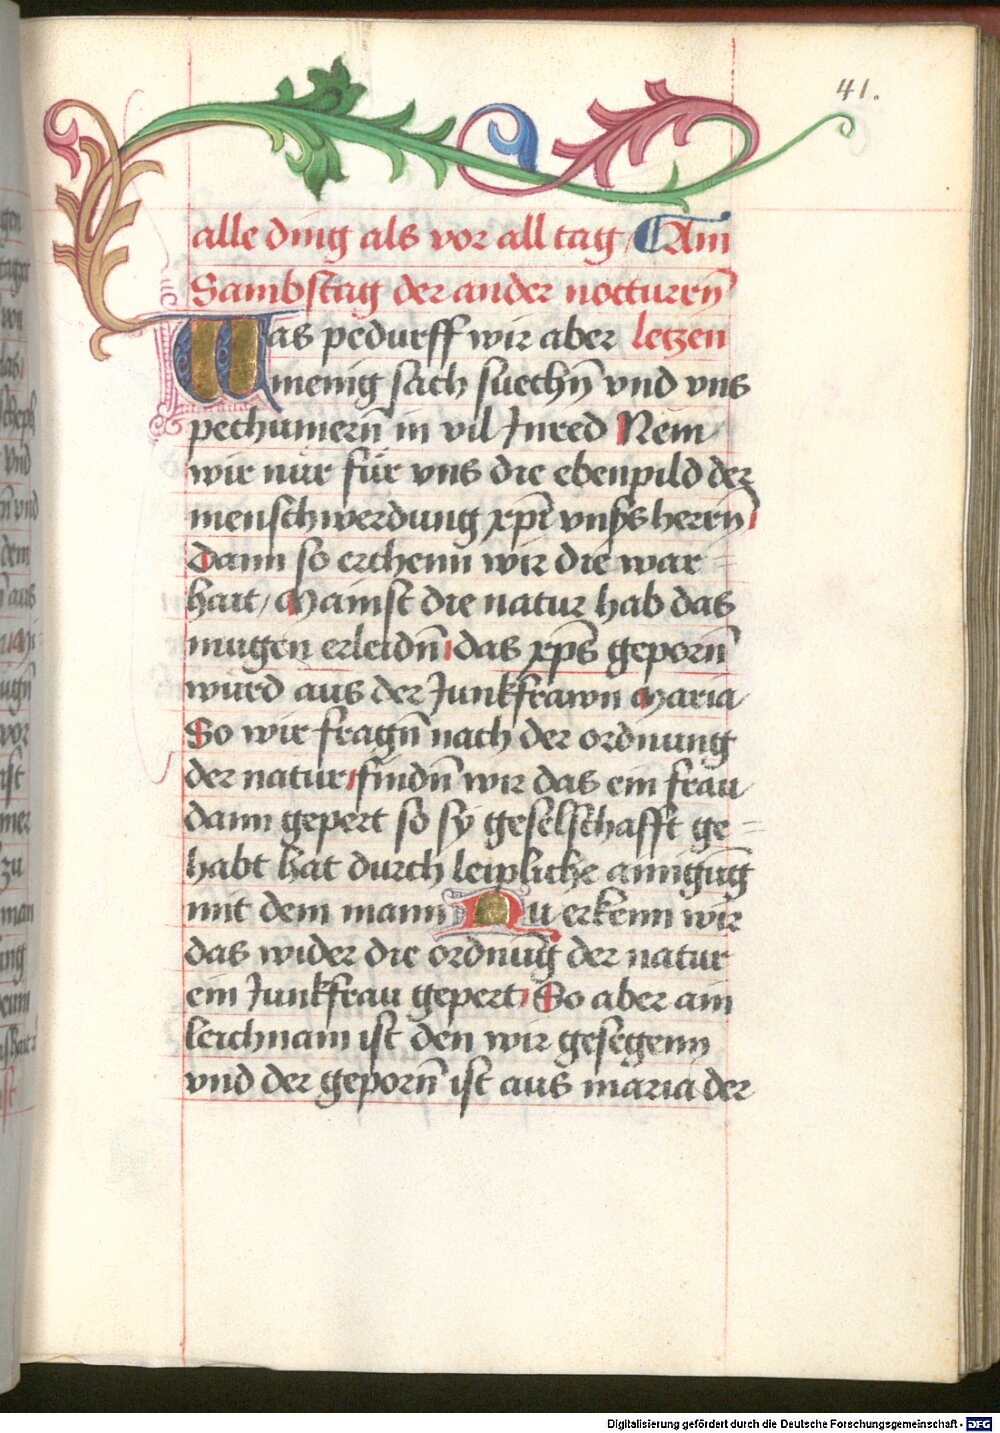 41.
alle ding als vor all tag Am
Sambstag der ander notturn̄
Was pedurff wir aber letzen
menig sach suechn̄ vnd vns
pechumern̄ in vil Inred Nem
wir nur für vns die ebenpild der
menschwerdung xp̄i vnsers herrn̄
Dann so erchenn wir die war=
hait / Mainst die natur hab das
mugen erleidn̄ das xp̄s geporn̄
wurd aus der Junkfrawn Maria
So wir fragn̄ nach der ordnung
der natur findn̄ wir das ein frau
dann gepert so sy geselschafft ge=
habt hat durch leipliche ainigūg
mit dem mann Nu erkenn wir
das wider die ordnūg der natur
ein Junkfrau gepert So aber ain
leichnam ist den wir gesegenn
vnd der geporn̄ ist aus maria der
Digitalisierung gefördert durch die Deutsche Forschungsgemeinschaft - DFG